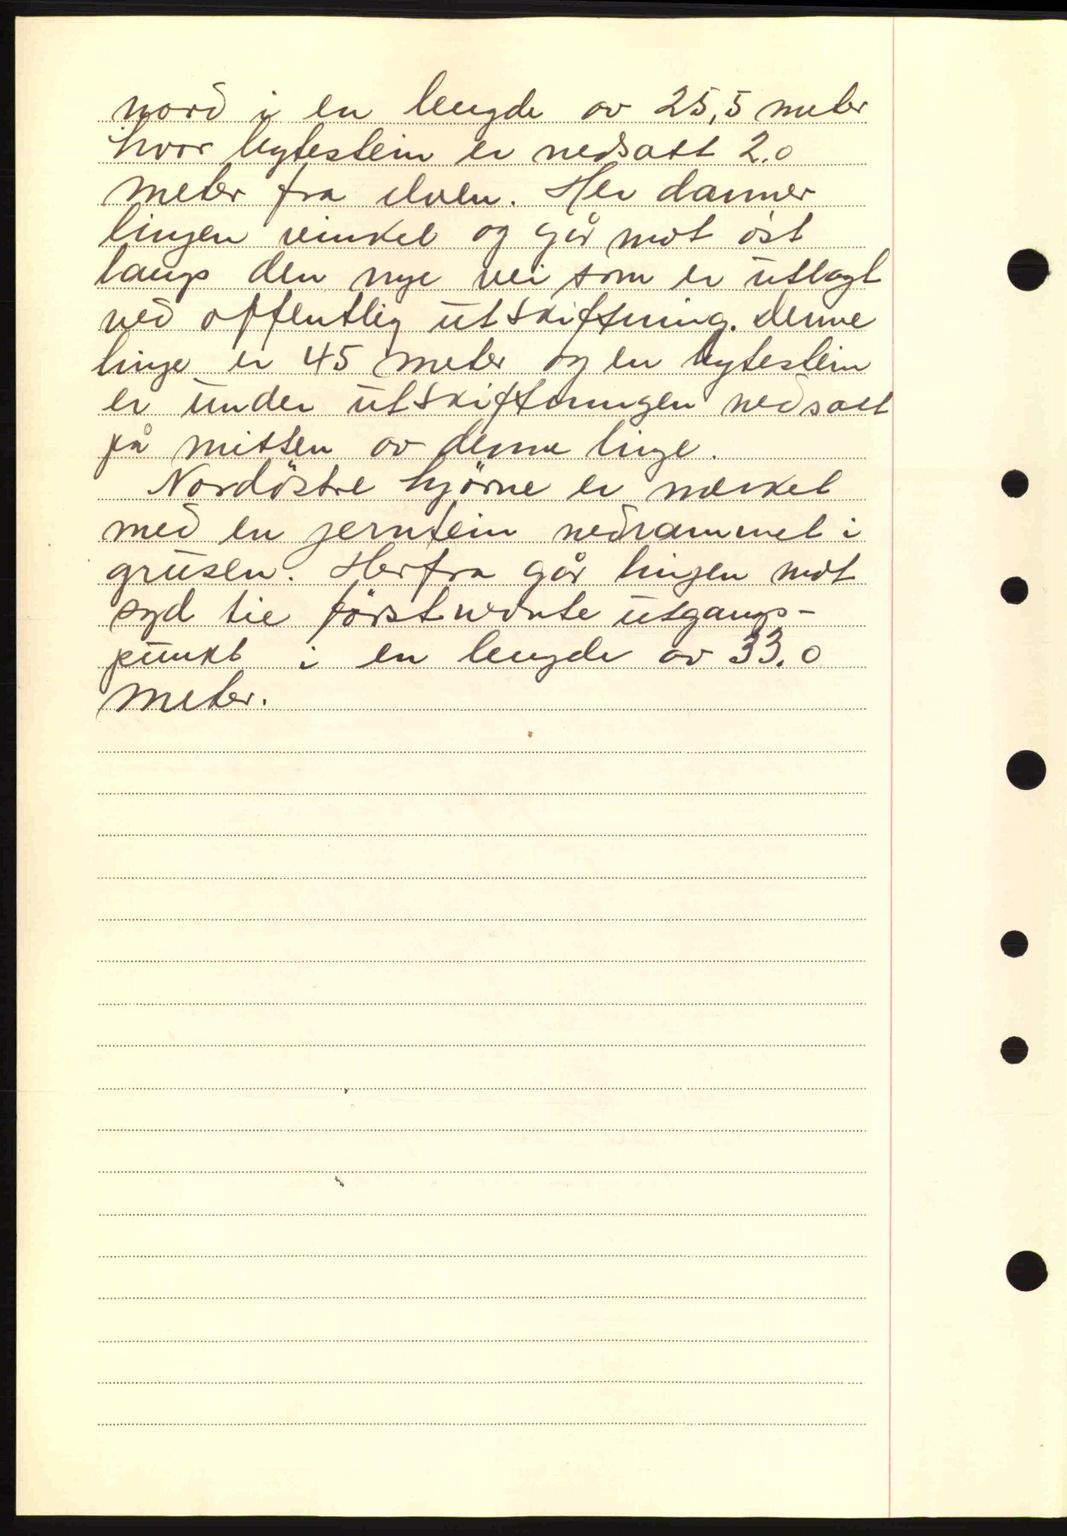 nord i en lengde av 25,5 meter
hvor bytestein er nedsatt 2.0
meter fra elven. Her danner
linjen vinkel og går mot øst
langs den nye vei som er utlagt
ved offentlig utskiftning. Denne
linje er 45 meter og en bytestein
er under utskiftningen nedsatt
på mitten av denne linje.
Nordöstre hjörne er merket
med en jerntein nedrammet i
grusen. Herfra går linjen mot
syd til först nevnte utgangs-
punkt i en lengde av 33.0
meter.